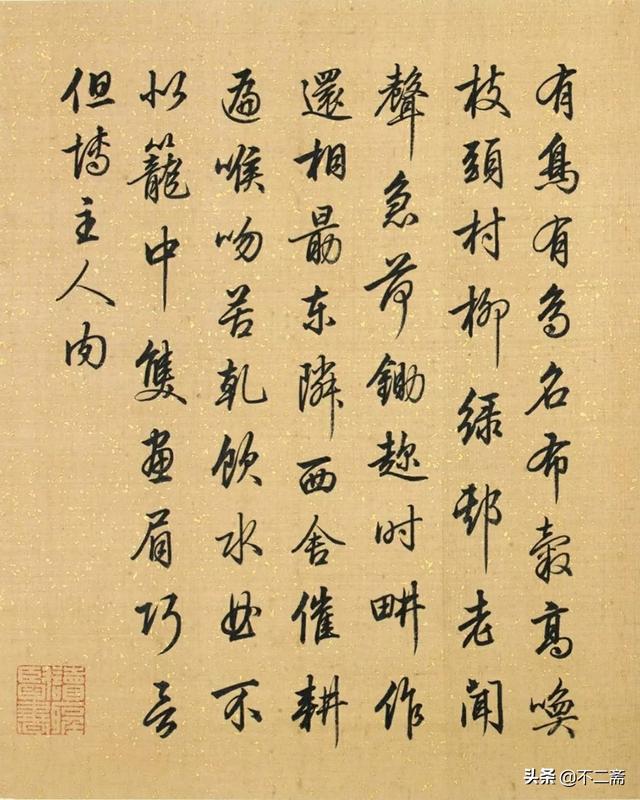 有鳥有鳥名布穀高喚
枝頭村柳緑老聞
聲急荷鋤趂時畊作
還相勗東隣西舍催耕
遍喉吻苦乾飲水曲不
似籠中隻畫眉巧言
但博主人肉
头条 @不二斋